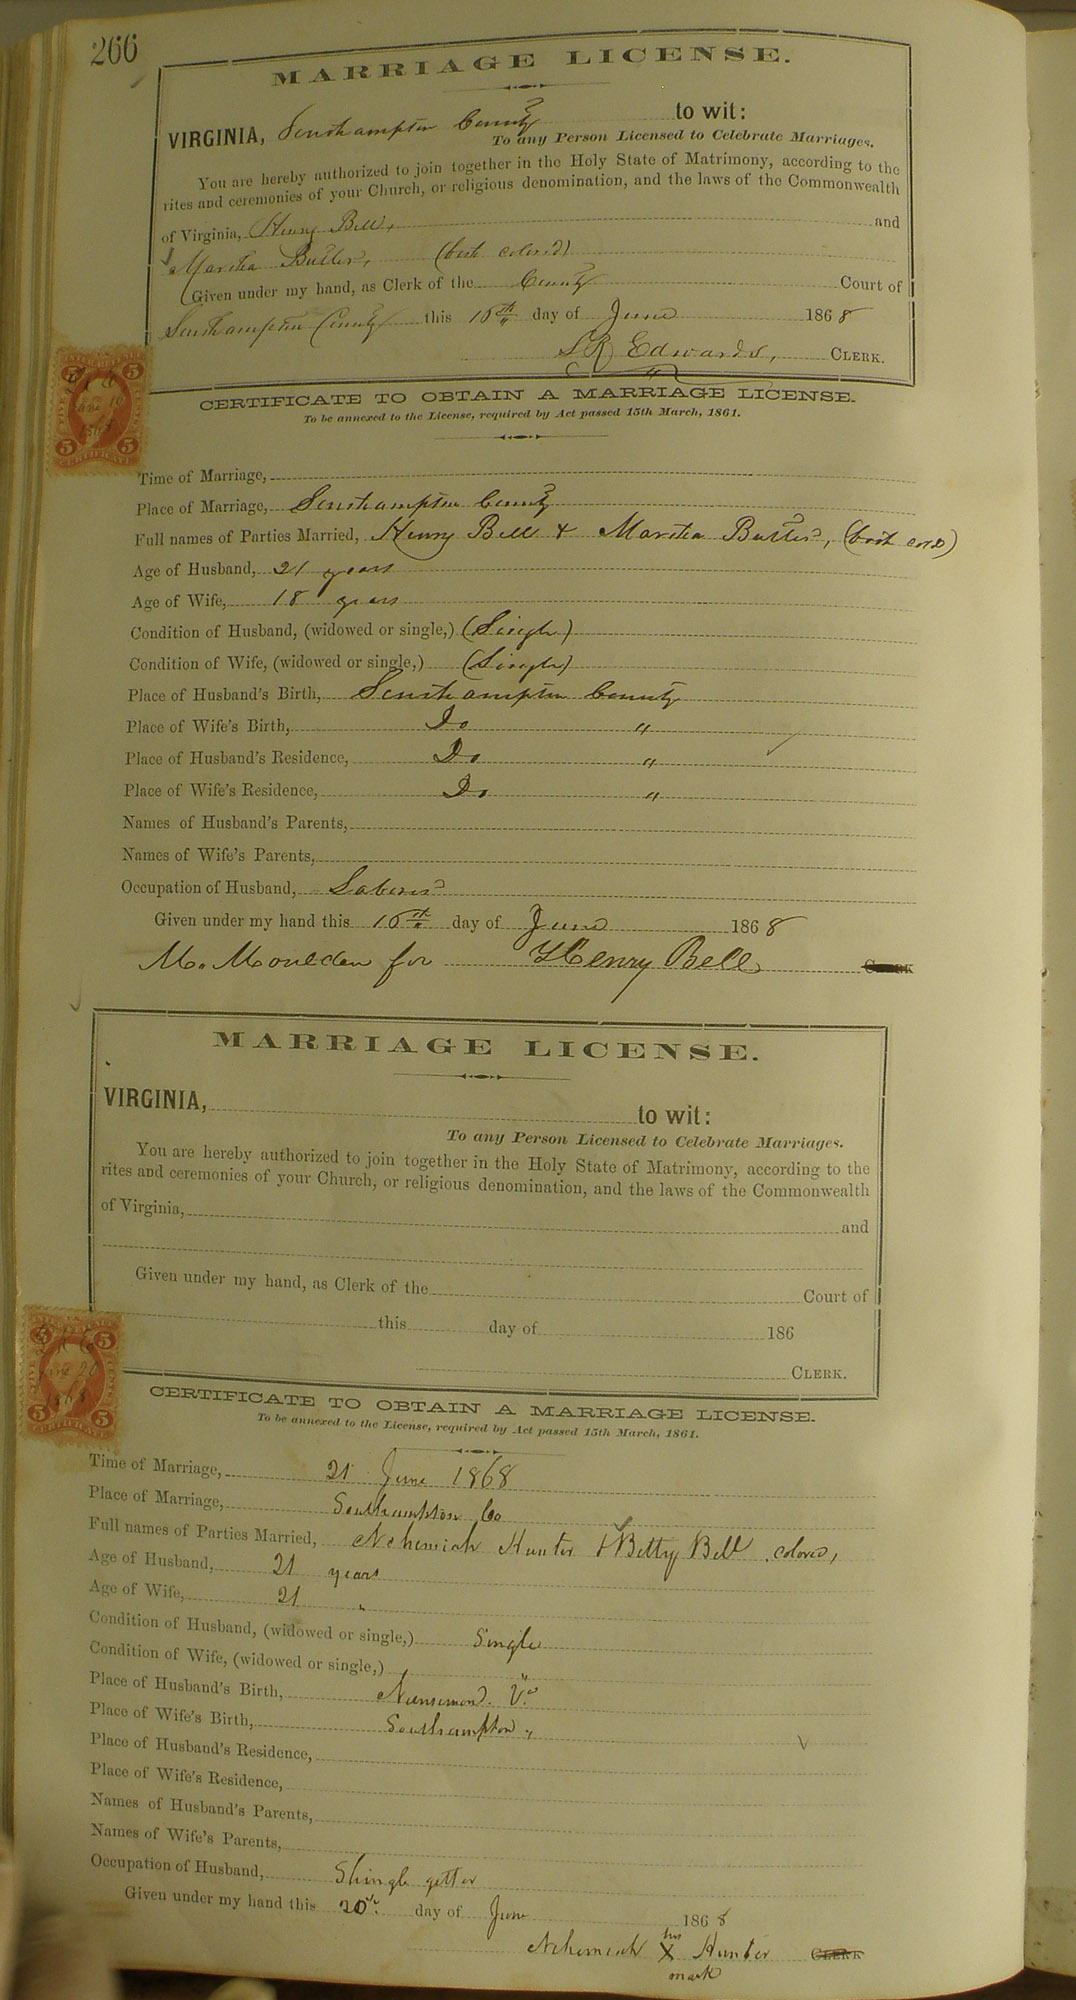 266
MARRIAGE LICENSE.
VIRGINIA, Southampton County to wit:
To any Person Licensed to Celebrate Marriages.
You are hereby authorized to join together in the Holy State of Matrimony, according to the
rites and ceremonies of your Church, or religious denomination, and the laws of the Commonwealth
of Virginia, Henry Bell, and
Martha Butler, (both colored)
Given under my hand, as Clerk of the County Court of
Southampton County this 16th day of June 1868
LR Edwards, CLERK.
CERTIFICATE TO OBTAIN A MARRIAGE LICENSE.
To be annexed to the License, required by Act passed 15th March, 1861.
Time of Marriage,
Place of Marriage, Southampton County
Full names of Parties Married, Henry Bell & Martha Butler, (both cold)
Age of Husband, 21 years
Age of Wife, 18 years
Condition of Husband, (widowed or single,) (Single)
Condition of Wife, (widowed or single,) (Single)
Place of Husband's Birth, Southampton County
Place of Wife's Birth, Do "
Place of Husband's Residence, Do "
Place of Wife's Residence, Do "
Names of Husband's Parents,
Names of Wife's Parents,
Occupation of Husband, Laborer
Given under my hand this 16th day of June 1868
M. Moulden for Henry Bell CLERK
MARRIAGE LICENSE.
VIRGINIA, to wit:
To any Person Licensed to Celebrate Marriages.
You are hereby authorized to join together in the Holy State of Matrimony, according to the
rites and ceremonies of your Church, or religious denomination, and the laws of the Commonwealth
of Virginia, and
Given under my hand, as Clerk of the Court of
this day of 186
CLERK.
CERTIFICATE TO OBTAIN A MARRIAGE LICENSE.
To be annexed to the License, required by Act passed 15th March, 1861.
Time of Marriage, 21 June 1868
Place of Marriage, Southampton Co
Full names of Parties Married, Nehemiah Hunter & Betty Bell colored,
Age of Husband, 21 years
Age of Wife, 21 "
Condition of Husband, (widowed or single,) Single
Condition of Wife, (widowed or single,) "
Place of Husband's Birth, Nansemond. Va
Place of Wife's Birth, Southampton "
Place of Husband's Residence,
Place of Wife's Residence,
Names of Husband's Parents,
Names of Wife's Parents,
Occupation of Husband, Shingle getter
Given under my hand this 20th day of June 1868
Nehemiah his X mark Hunter CLERK